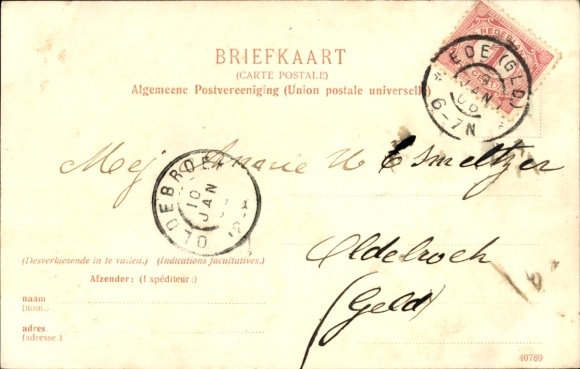 BRIEFKAART
(CARTE POSTALE)
Algemeene Postvereeniging (Union postale universelle)
NEDERLAND
EDE (GLD)
JAN
6-7N
Mej
Oldebroek
(Geld)
OLDEBROEK
10
JAN
(Desverkiezende in te vullen.) (Indications facultatives.)
Afzender: (Expéditeur:)
naam
(nom.)
adres
(adresse.)
40789